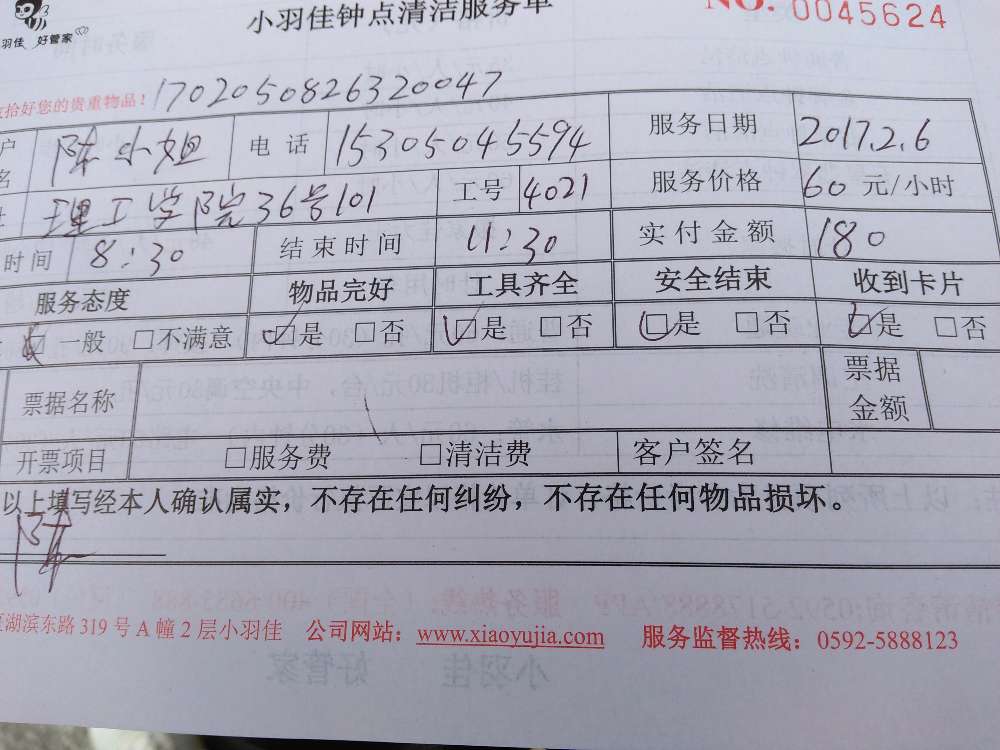 小羽佳钟点清洁服务单 NO. 0045624
羽佳 好管家
拾好您的贵重物品! 1702050826320047
户名 陈小姐 电话 15305045594 服务日期 2017.2.6
理工学院36号101 工号 4021 服务价格 60 元/小时
时间 8:30 结束时间 11:30 实付金额 180
服务态度 物品完好 工具齐全 安全结束 收到卡片
一般 □不满意 ☑是 □否 ☑是 □否 ☑是 □否 ☑是 □否
票据名称 票据金额
开票项目 □服务费 □清洁费 客户签名
以上填写经本人确认属实，不存在任何纠纷，不存在任何物品损坏。
陈
湖滨东路 319 号 A 幢 2 层小羽佳 公司网站：www.xiaoyujia.com 服务监督热线：0592-5888123